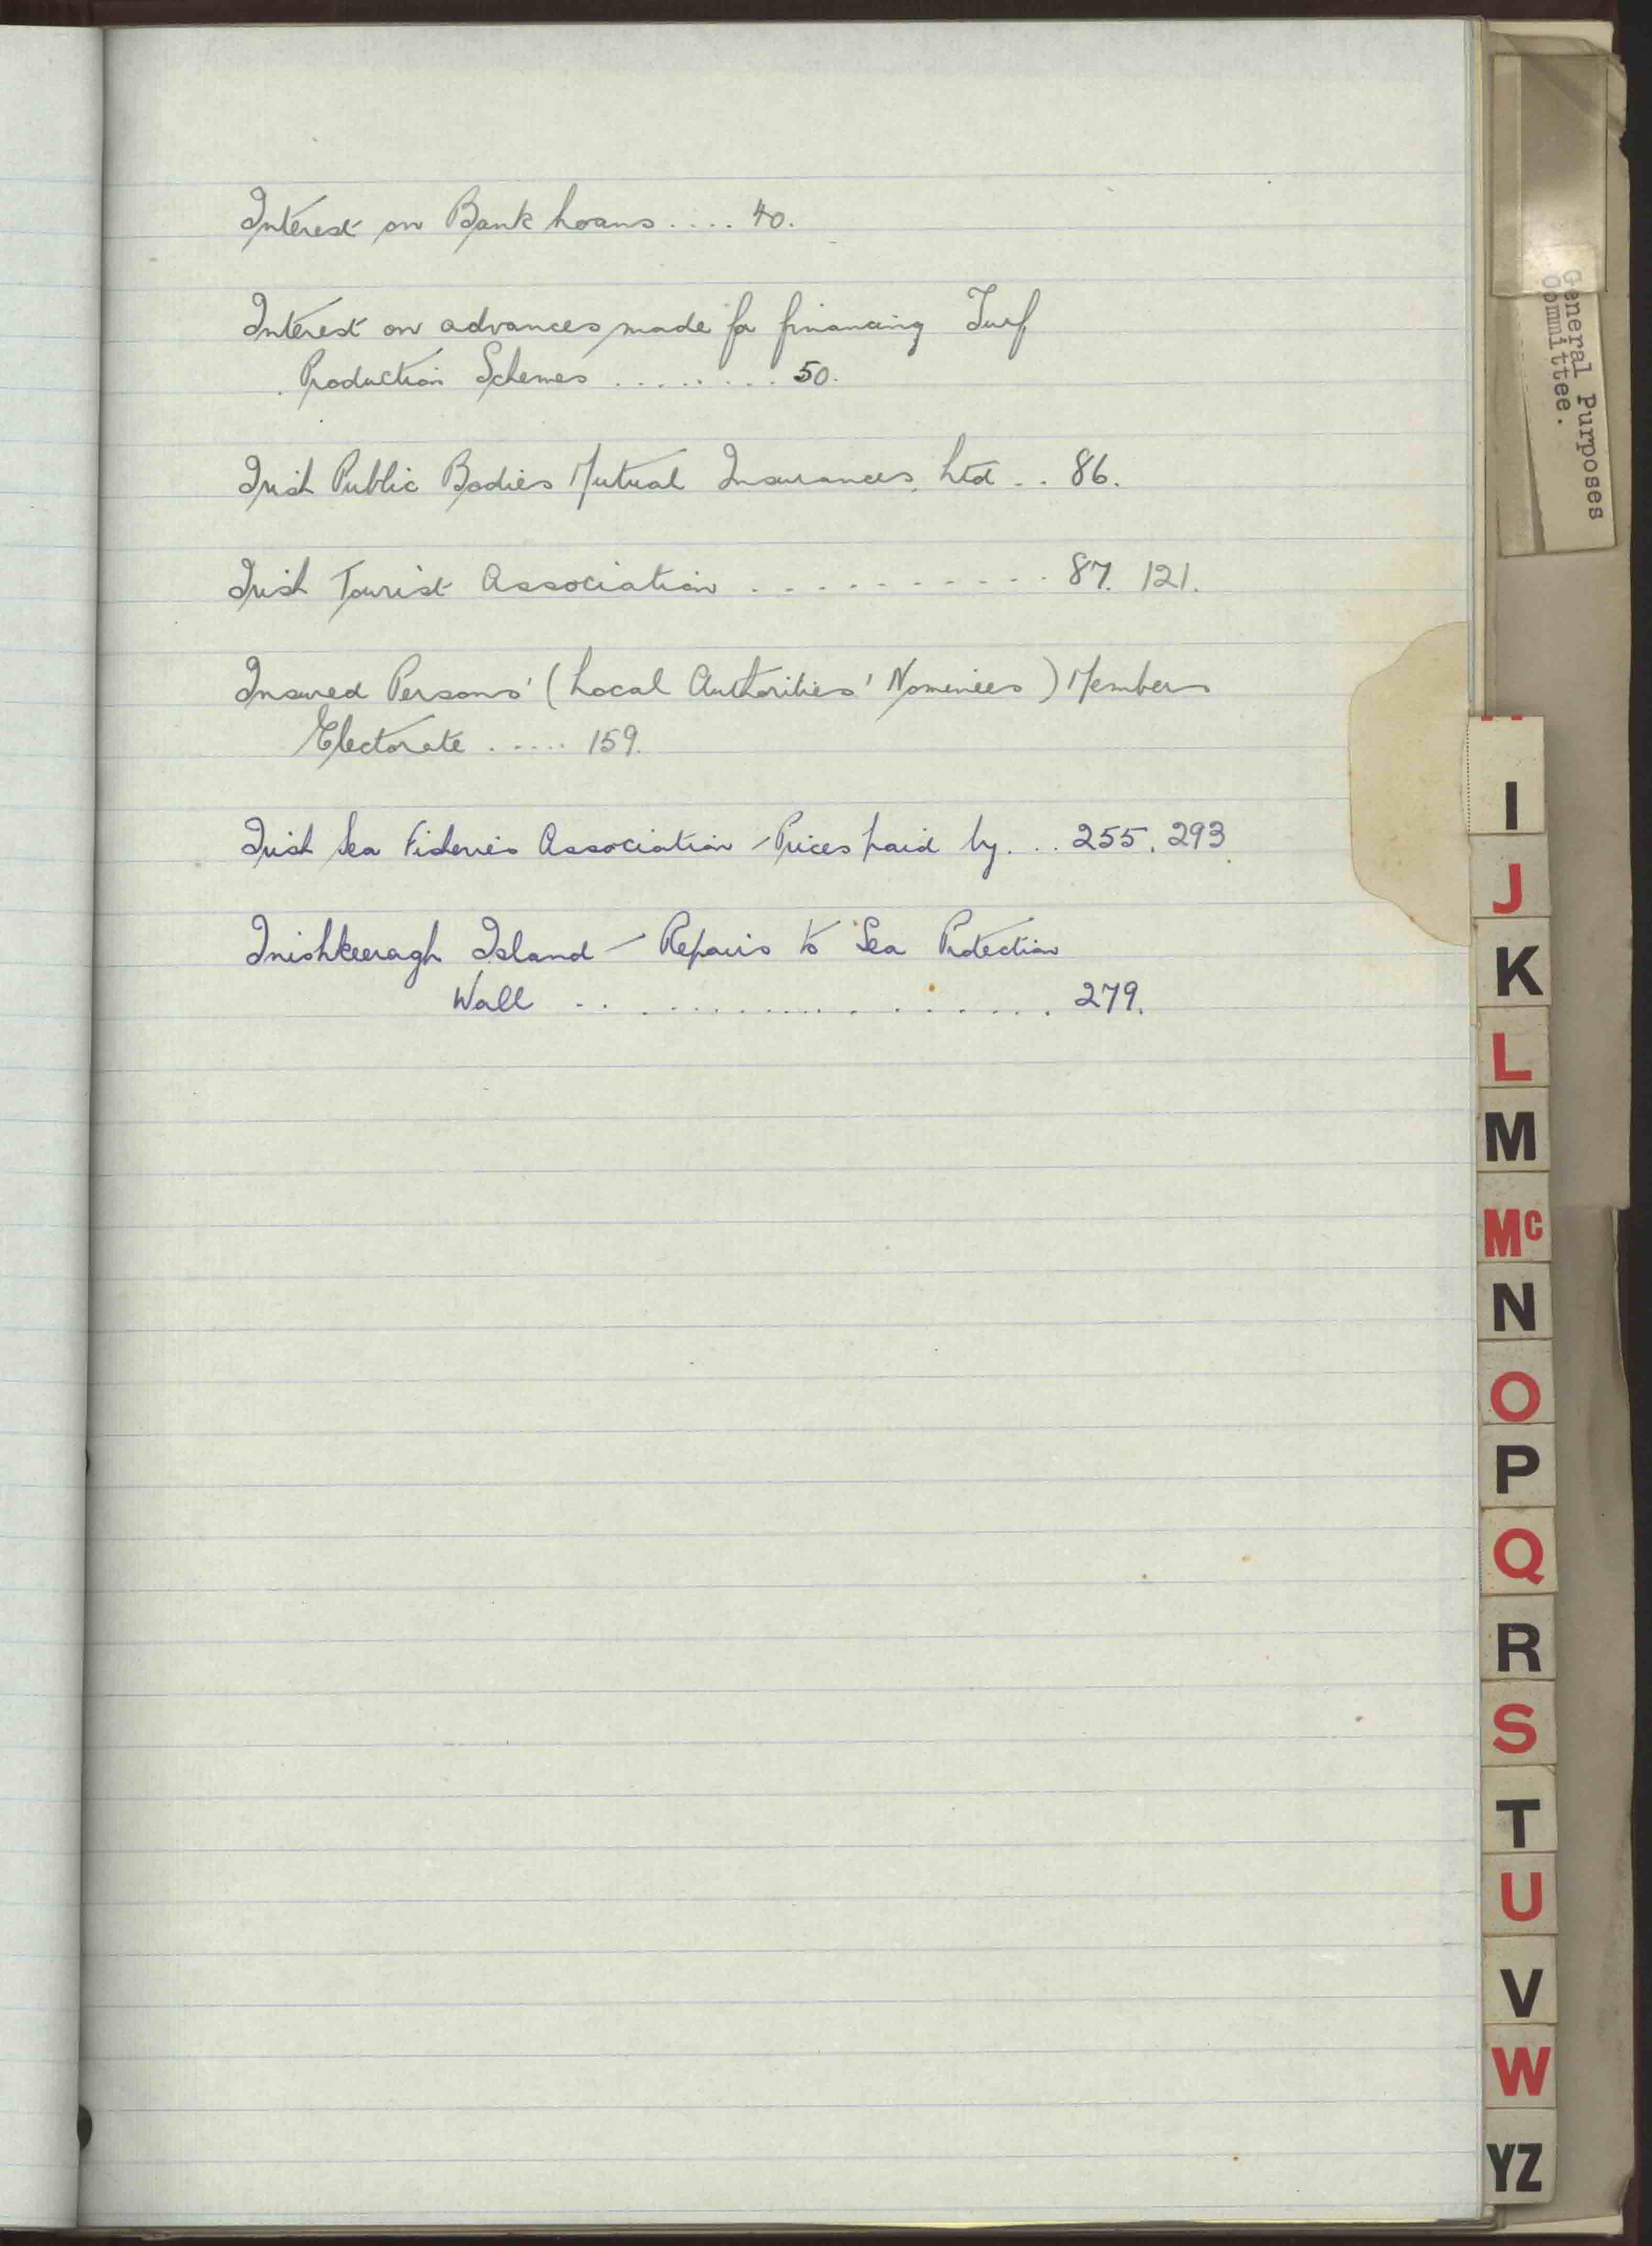 Interest on Bank Loans .... 40.
Interest on advances made for financing Turf
Production Schemes ......... 50.
Irish Public Bodies Mutual Insurances, Ltd .. 86.
Irish Tourist Association ............ 87. 121.
Insured Persons' (Local Authorities' Nominees) Members
Electorate ..... 159.
Irish Sea Fisheries Association - Prices paid by ... 255. 293.
Inishkeeragh Island - Repairs to Sea Protection
Wall .................. 279.
General Purposes
Committee.
I
J
K
L
M
Mc
N
O
P
Q
R
S
T
U
V
W
YZ